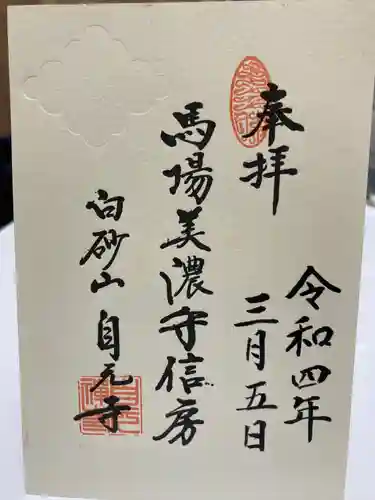 奉拝
令和四年
三月五日
馬場美濃守信房
白砂山
自元寺